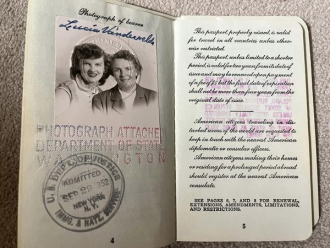 Photograph of bearer
PHOTOGRAPH ATTACHED
DEPARTMENT OF STATE
WASHINGTON
ADMITTED
NEW YORK
4
This passport, properly visaed, is valid
for travel in all countries unless other-
wise restricted.
This passport, unless limited to a shorter
period, is valid for two years from its date of
issue and may be renewed upon payment
of a fee of but the final date of expiration
shall not be more than four years from the
original date of issue.
American citizens traveling in dis-
turbed areas of the world are requested to
keep in touch with the nearest American
diplomatic or consular officers.
American citizens making their homes
or residing for a prolonged period abroad
should register at the nearest American
consulate.
SEE PAGES 6, 7, AND 8 FOR RENEWAL,
EXTENSIONS, AMENDMENTS, LIMITATIONS,
AND RESTRICTIONS.
5